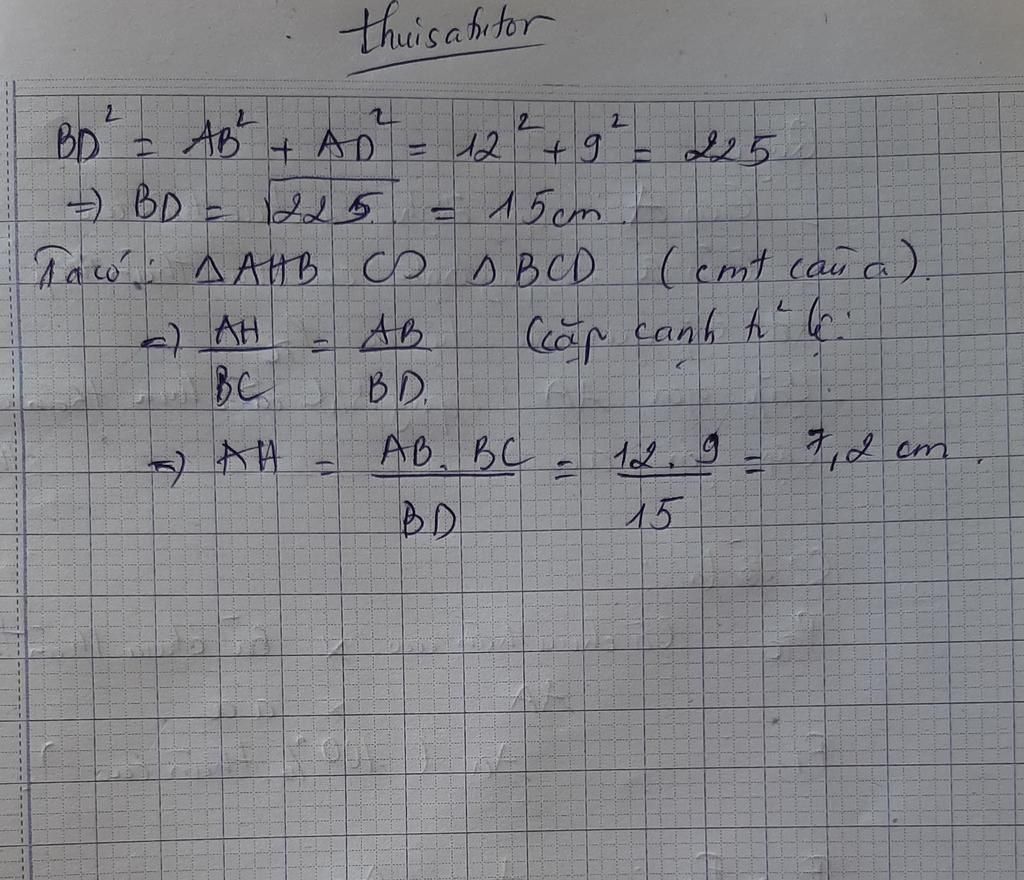 thuisatutor
BD² = AB² + AD² = 12² + 9² = 225
=) BD = √225 = 15cm.
Ta có: Δ AHB ∽ Δ BCD (cmt câu a).
=) AH/BC = AB/BD. (cặp cạnh
=) AH = AB.BC/BD = 12.9/15 = 7,2 cm.